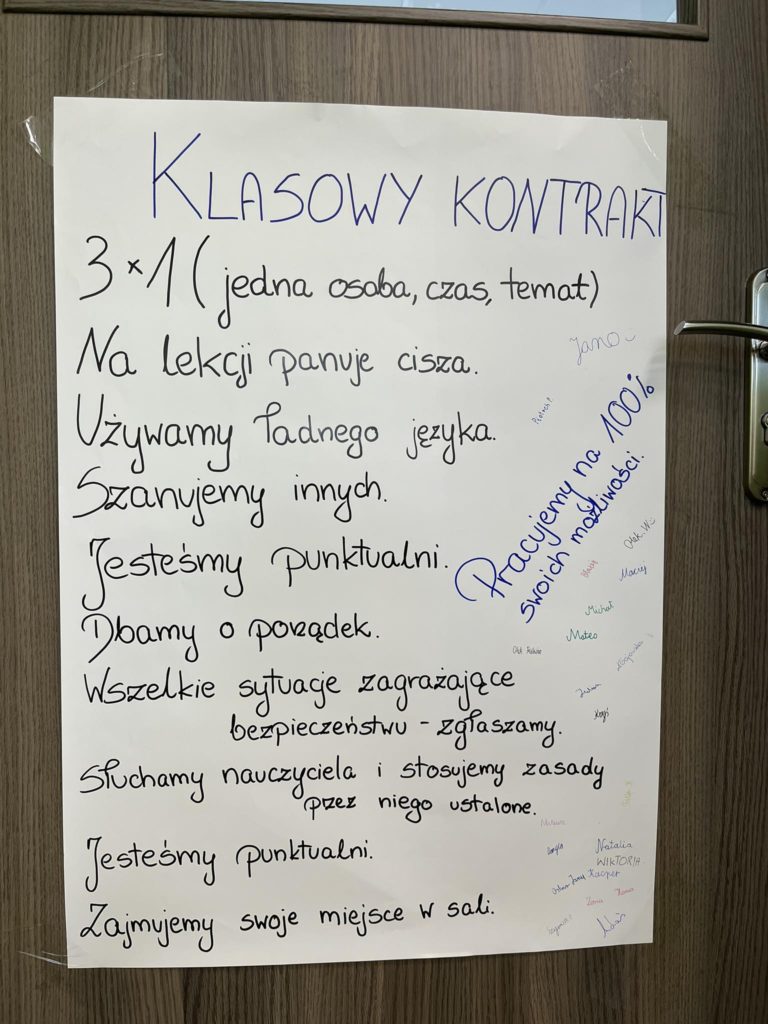 KLASOWY KONTRAKT
3×1 (jedna osoba, czas, temat)
Na lekcji panuje cisza.
Używamy ładnego języka.
Szanujemy innych.
Jesteśmy punktualni.
Dbamy o porządek.
Wszelkie sytuacje zagrażające
bezpieczeństwu - zgłaszamy.
Słuchamy nauczyciela i stosujemy zasady
przez niego ustalone.
Jesteśmy punktualni.
Zajmujemy swoje miejsce w sali.
Pracujemy na 100%
swoich możliwości.
Maciej
Michał
Mateo
Natalia
WIKTORIA
Kacper